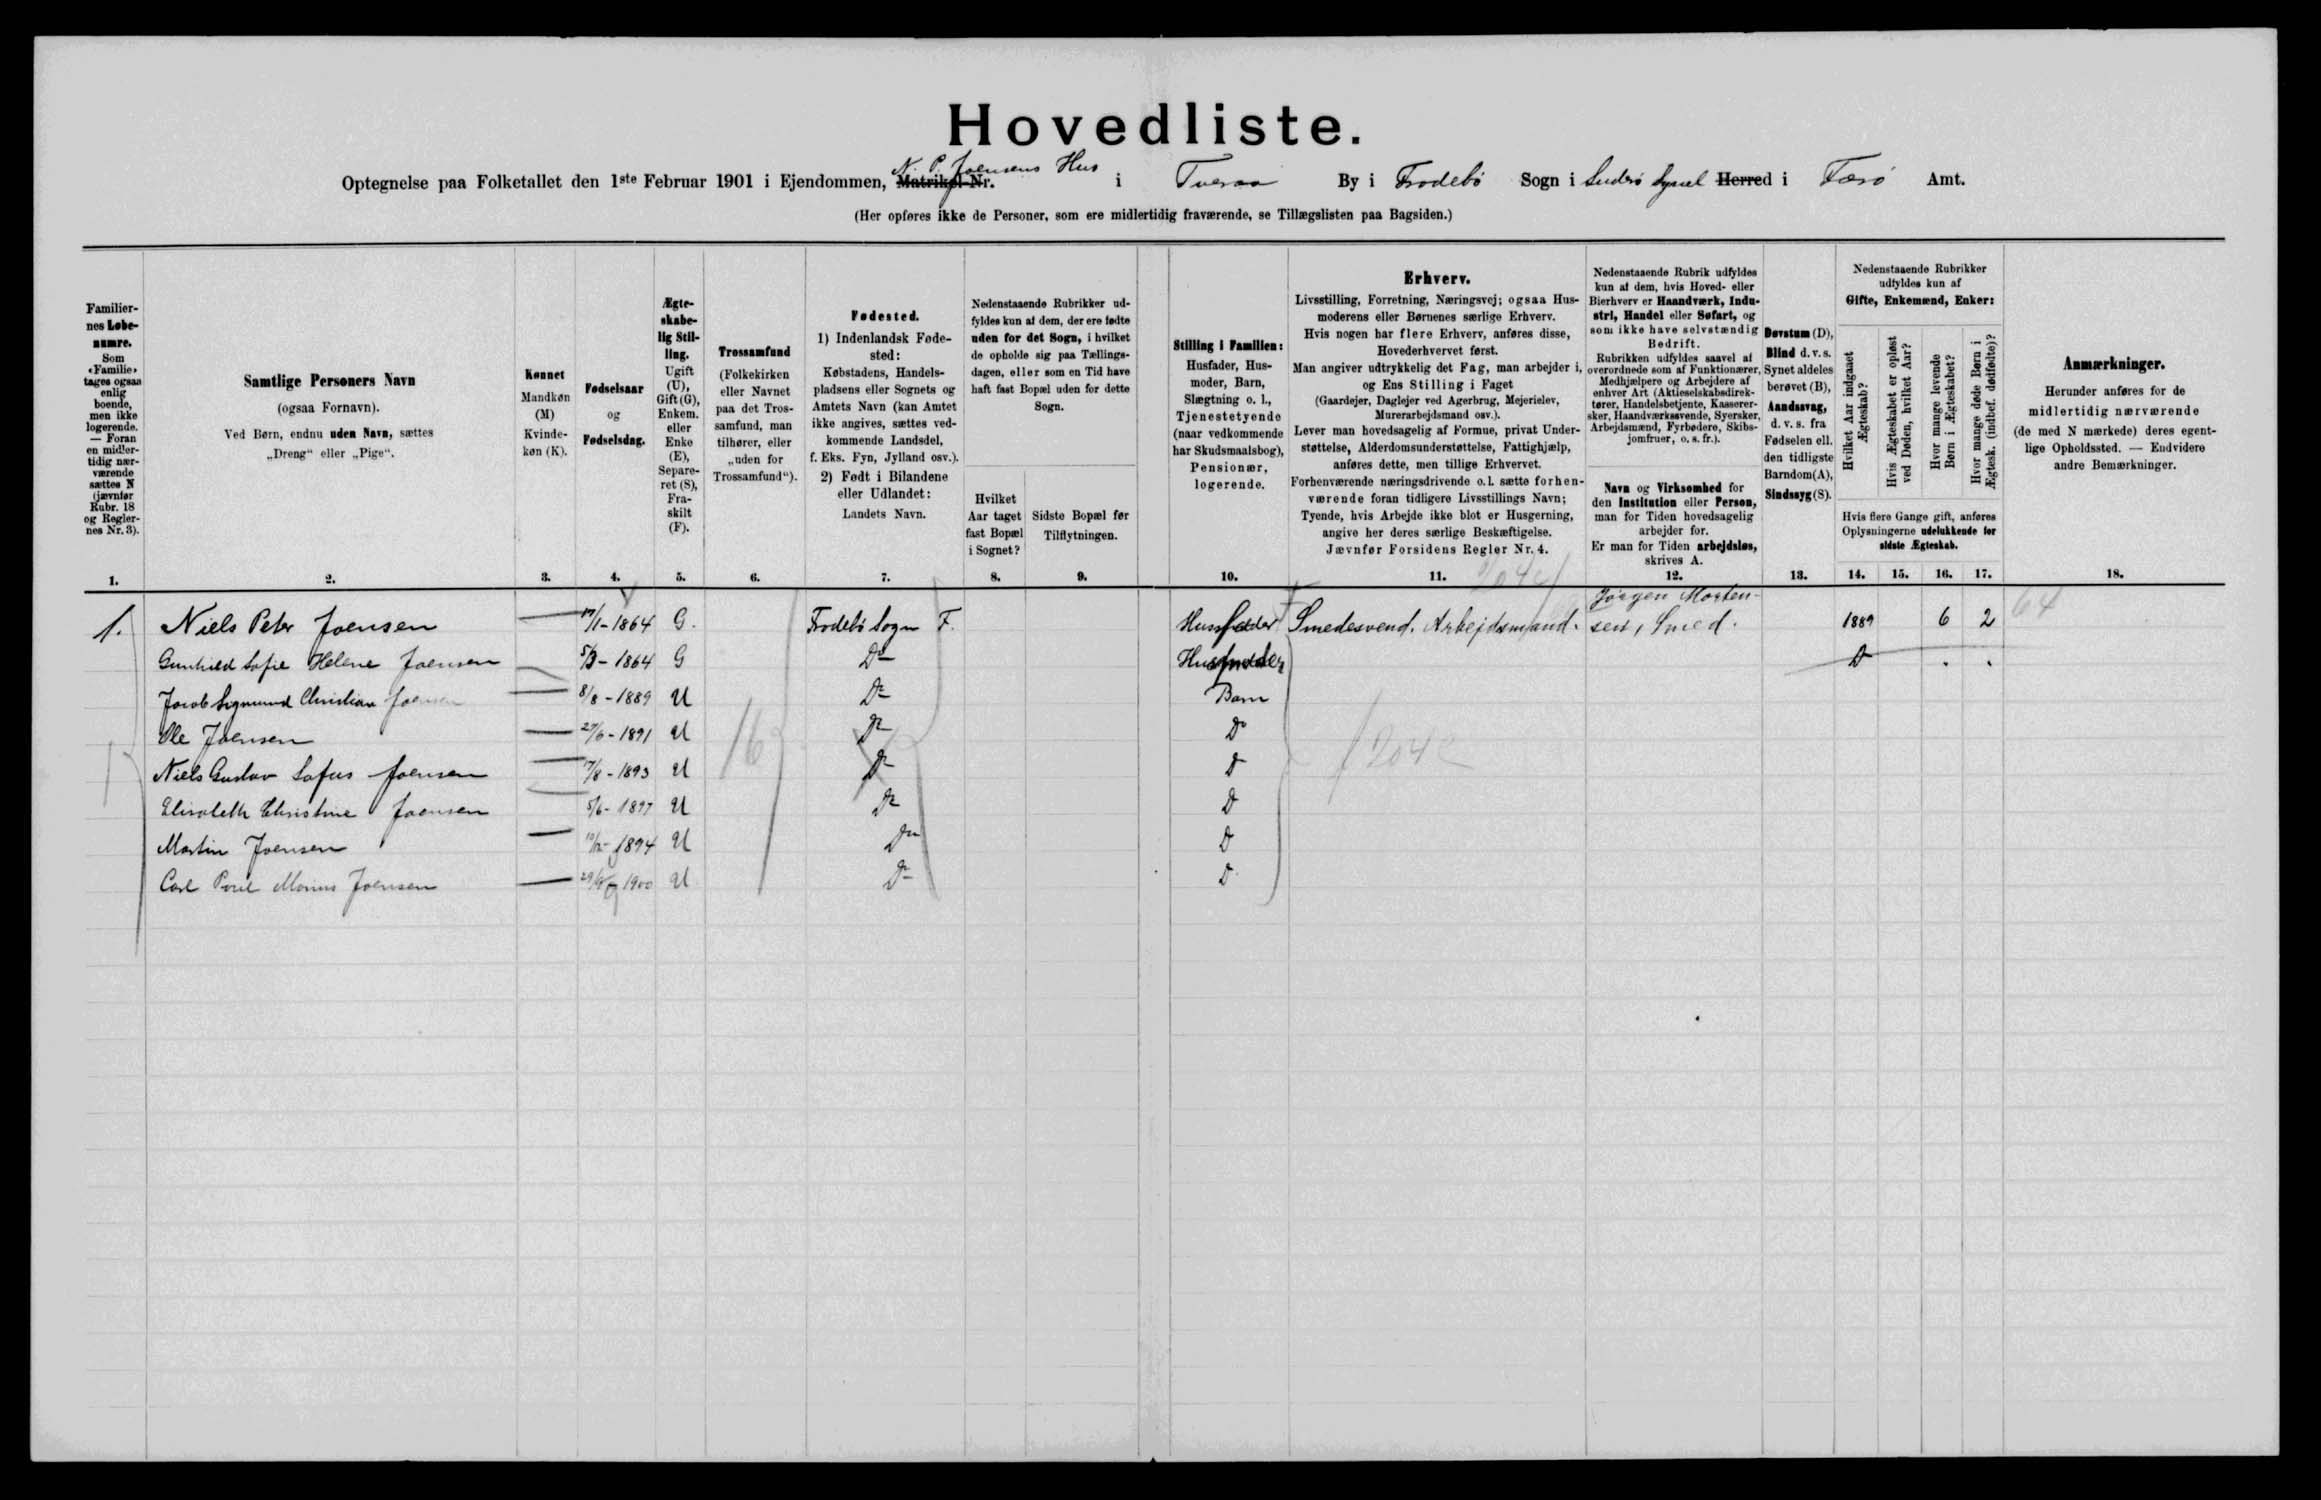 Hovedliste.
N. P. Joensens Hus
Optegnelse paa Folketallet den 1ste Februar 1901 i Ejendommen, Matrikel-Nr. i Tveraa By i Frodebø Sogn i Suderø Syssel Herred i Færø Amt.
(Her opføres ikke de Personer, som ere midlertidig fraværende, se Tillægslisten paa Bagsiden.)
Familiernes Løbenumre.
Som «Familie» tages ogsaa enlig boende, men ikke logerende. — Foran en midlertidig nærværende sættes N (jævnfør Rubr. 18 og Reglernes Nr. 3).
1.
Samtlige Personers Navn
(ogsaa Fornavn).
Ved Børn, endnu uden Navn, sættes
„Dreng“ eller „Pige“.
2.
Kønnet
Mandkøn (M)
Kvindekøn (K).
3.
Fødselsaar
og
Fødselsdag.
4.
Ægteskabelig Stilling.
Ugift (U), Gift (G), Enkem. eller Enke (E), Separeret (S), Fraskilt (F).
5.
Trossamfund
(Folkekirken eller Navnet paa det Trossamfund, man tilhører, eller „uden for Trossamfund“).
6.
Fødested.
1) Indenlandsk Fødested: Købstadens, Handelspladsens eller Sognets og Amtets Navn (kan Amtet ikke angives, sættes vedkommende Landsdel, f. Eks. Fyn, Jylland osv.).
2) Født i Bilandene eller Udlandet: Landets Navn.
7.
Nedenstaaende Rubrikker udfyldes kun af dem, der ere fødte uden for det Sogn, i hvilket de opholde sig paa Tællingsdagen, eller som en Tid have haft fast Bopæl uden for dette Sogn.
Hvilket Aar taget fast Bopæl i Sognet?
8.
Sidste Bopæl før Tilflytningen.
9.
Stilling i Familien:
Husfader, Husmoder, Barn, Slægtning o. l., Tjenestetyende (naar vedkommende har Skudsmaalsbog), Pensionær, logerende.
10.
Erhverv.
Livsstilling, Forretning, Næringsvej; ogsaa Husmoderens eller Børnenes særlige Erhverv.
Hvis nogen har flere Erhverv, anføres disse, Hovederhvervet først.
Man angiver udtrykkelig det Fag, man arbejder i, og Ens Stilling i Faget
(Gaardejer, Daglejer ved Agerbrug, Mejerielev, Murerarbejdsmand osv.).
Lever man hovedsagelig af Formue, privat Understøttelse, Alderdomsunderstøttelse, Fattighjælp, anføres dette, men tillige Erhvervet.
Forhenværende næringsdrivende o. l. sætte forhenværende foran tidligere Livsstillings Navn;
Tyende, hvis Arbejde ikke blot er Husgerning, angive her deres særlige Beskæftigelse.
Jævnfør Forsidens Regler Nr. 4.
11.
Nedenstaaende Rubrik udfyldes kun af dem, hvis Hoved- eller Bierhverv er Haandværk, Industri, Handel eller Søfart, og som ikke have selvstændig Bedrift.
Rubrikken udfyldes saavel af overordnede som af Funktionærer, Medhjælpere og Arbejdere af enhver Art (Aktieselskabsdirektører, Handelsbetjente, Kasserersker, Haandværkssvende, Syersker, Arbejdsmænd, Fyrbødere, Skibsjomfruer, o. s. fr.).
Navn og Virksomhed for den Institution eller Person, man for Tiden hovedsagelig arbejder for.
Er man for Tiden arbejdsløs, skrives A.
12.
Døvstum (D), Blind d. v. s. Synet aldeles berøvet (B), Aandssvag, d. v. s. fra Fødselen ell. den tidligste Barndom (A), Sindssyg (S).
13.
Nedenstaaende Rubrikker udfyldes kun af
Gifte, Enkemænd, Enker:
Hvilket Aar indgaaet Ægteskab?
Hvis Ægteskabet er opløst ved Døden, hvilket Aar?
Hvor mange levende Børn i Ægteskabet?
Hvor mange døde Børn i Ægtesk. (indbef. dødfødte)?
Hvis flere Gange gift, anføres Oplysningerne udelukkende for sidste Ægteskab.
14. 15. 16. 17.
Anmærkninger.
Herunder anføres for de midlertidig nærværende (de med N mærkede) deres egentlige Opholdssted. — Endvidere andre Bemærkninger.
18.
1. Niels Peter Joensen 1864 G. Frodebø Sogn F. Husfader Smedesvend. Arbejdsmand. Jørgen Mortensen, Smed. 1889 6 2 64
Gunhild Sofie Helene Joensen 5/3 - 1864 G Do Husmoder D
Jacob Sigmund Christian Joensen 8/8 - 1889 U Do Barn
Ole Joensen 27/6 - 1891 U Do Do
Niels Gustav Sofus Joensen 17/8 - 1893 U D D
Elisabeth Christine Joensen 5/6 - 1897 U Do D
Martin Joensen 1894 U Do D
Carl Poul Marius Joensen 1900 U Do D